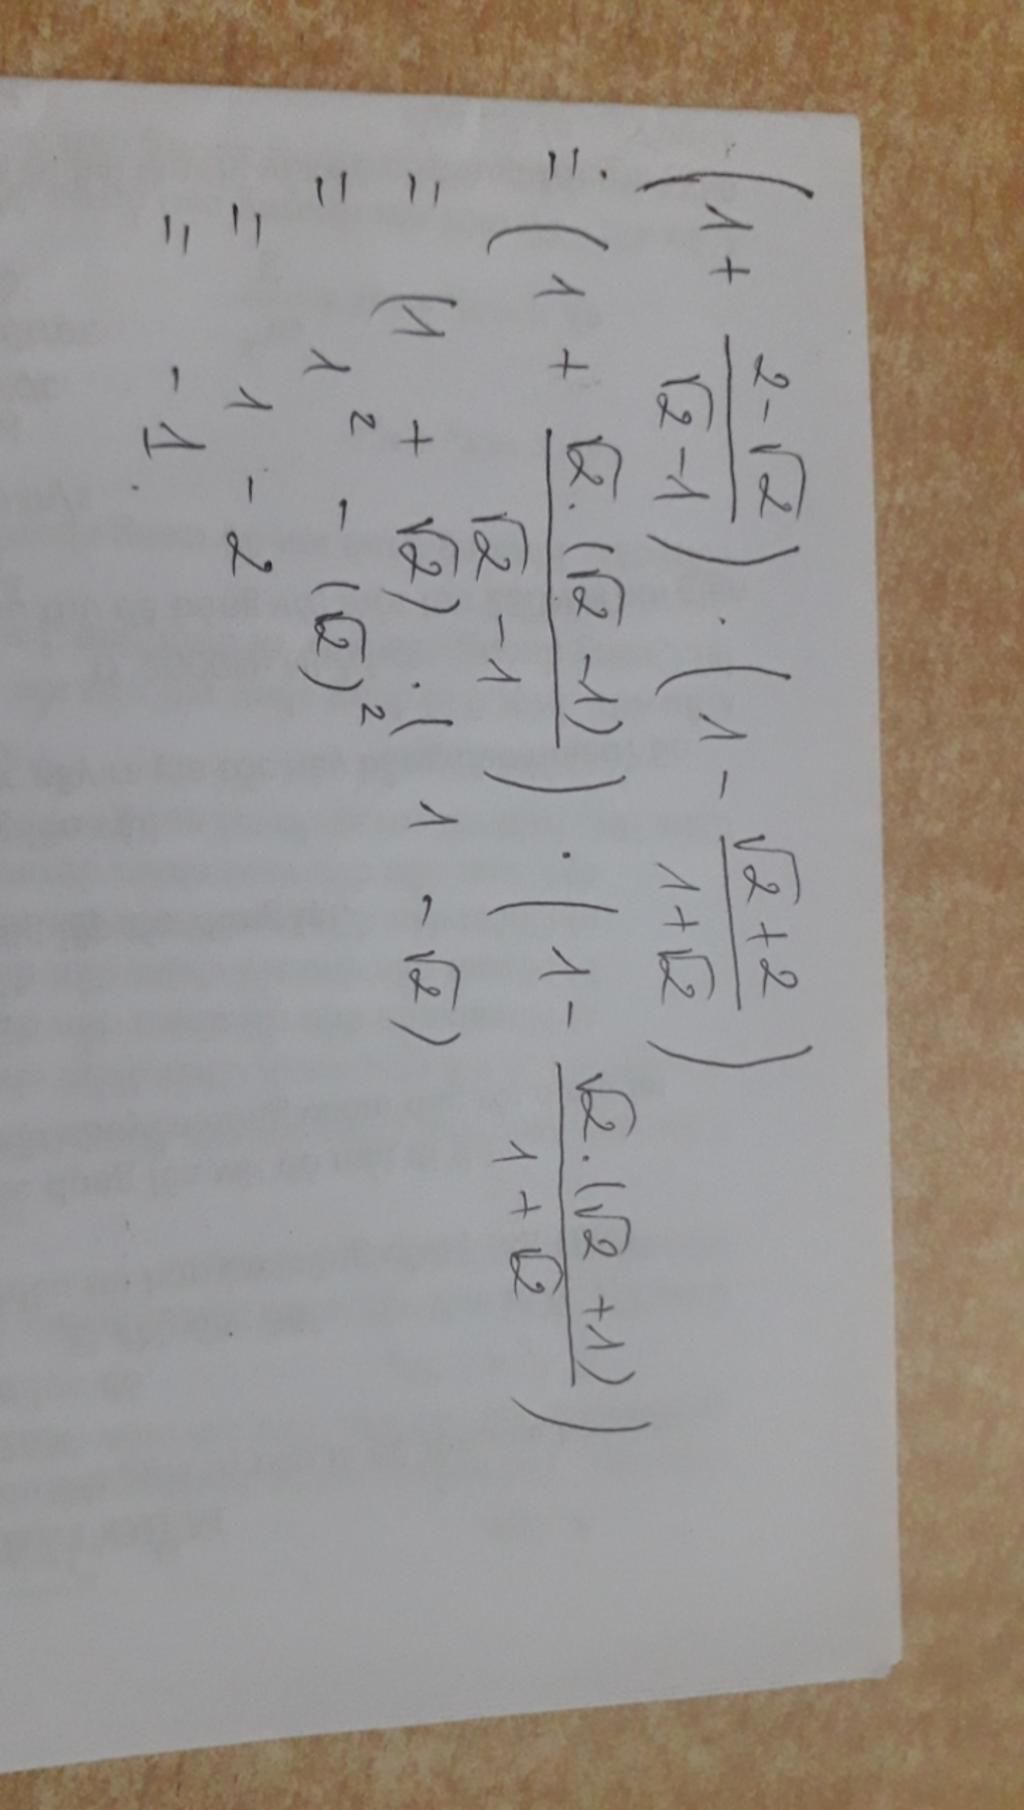 (1 + \frac{2-√2}{√2-1}) · (1 - \frac{√2+2}{1+√2})
= (1 + \frac{√2·(√2-1)}{√2-1}) · (1 - \frac{√2·(√2+1)}{1+√2})
= (1 + √2) · (1 - √2)
= 1² - (√2)²
= 1 - 2
= -1.